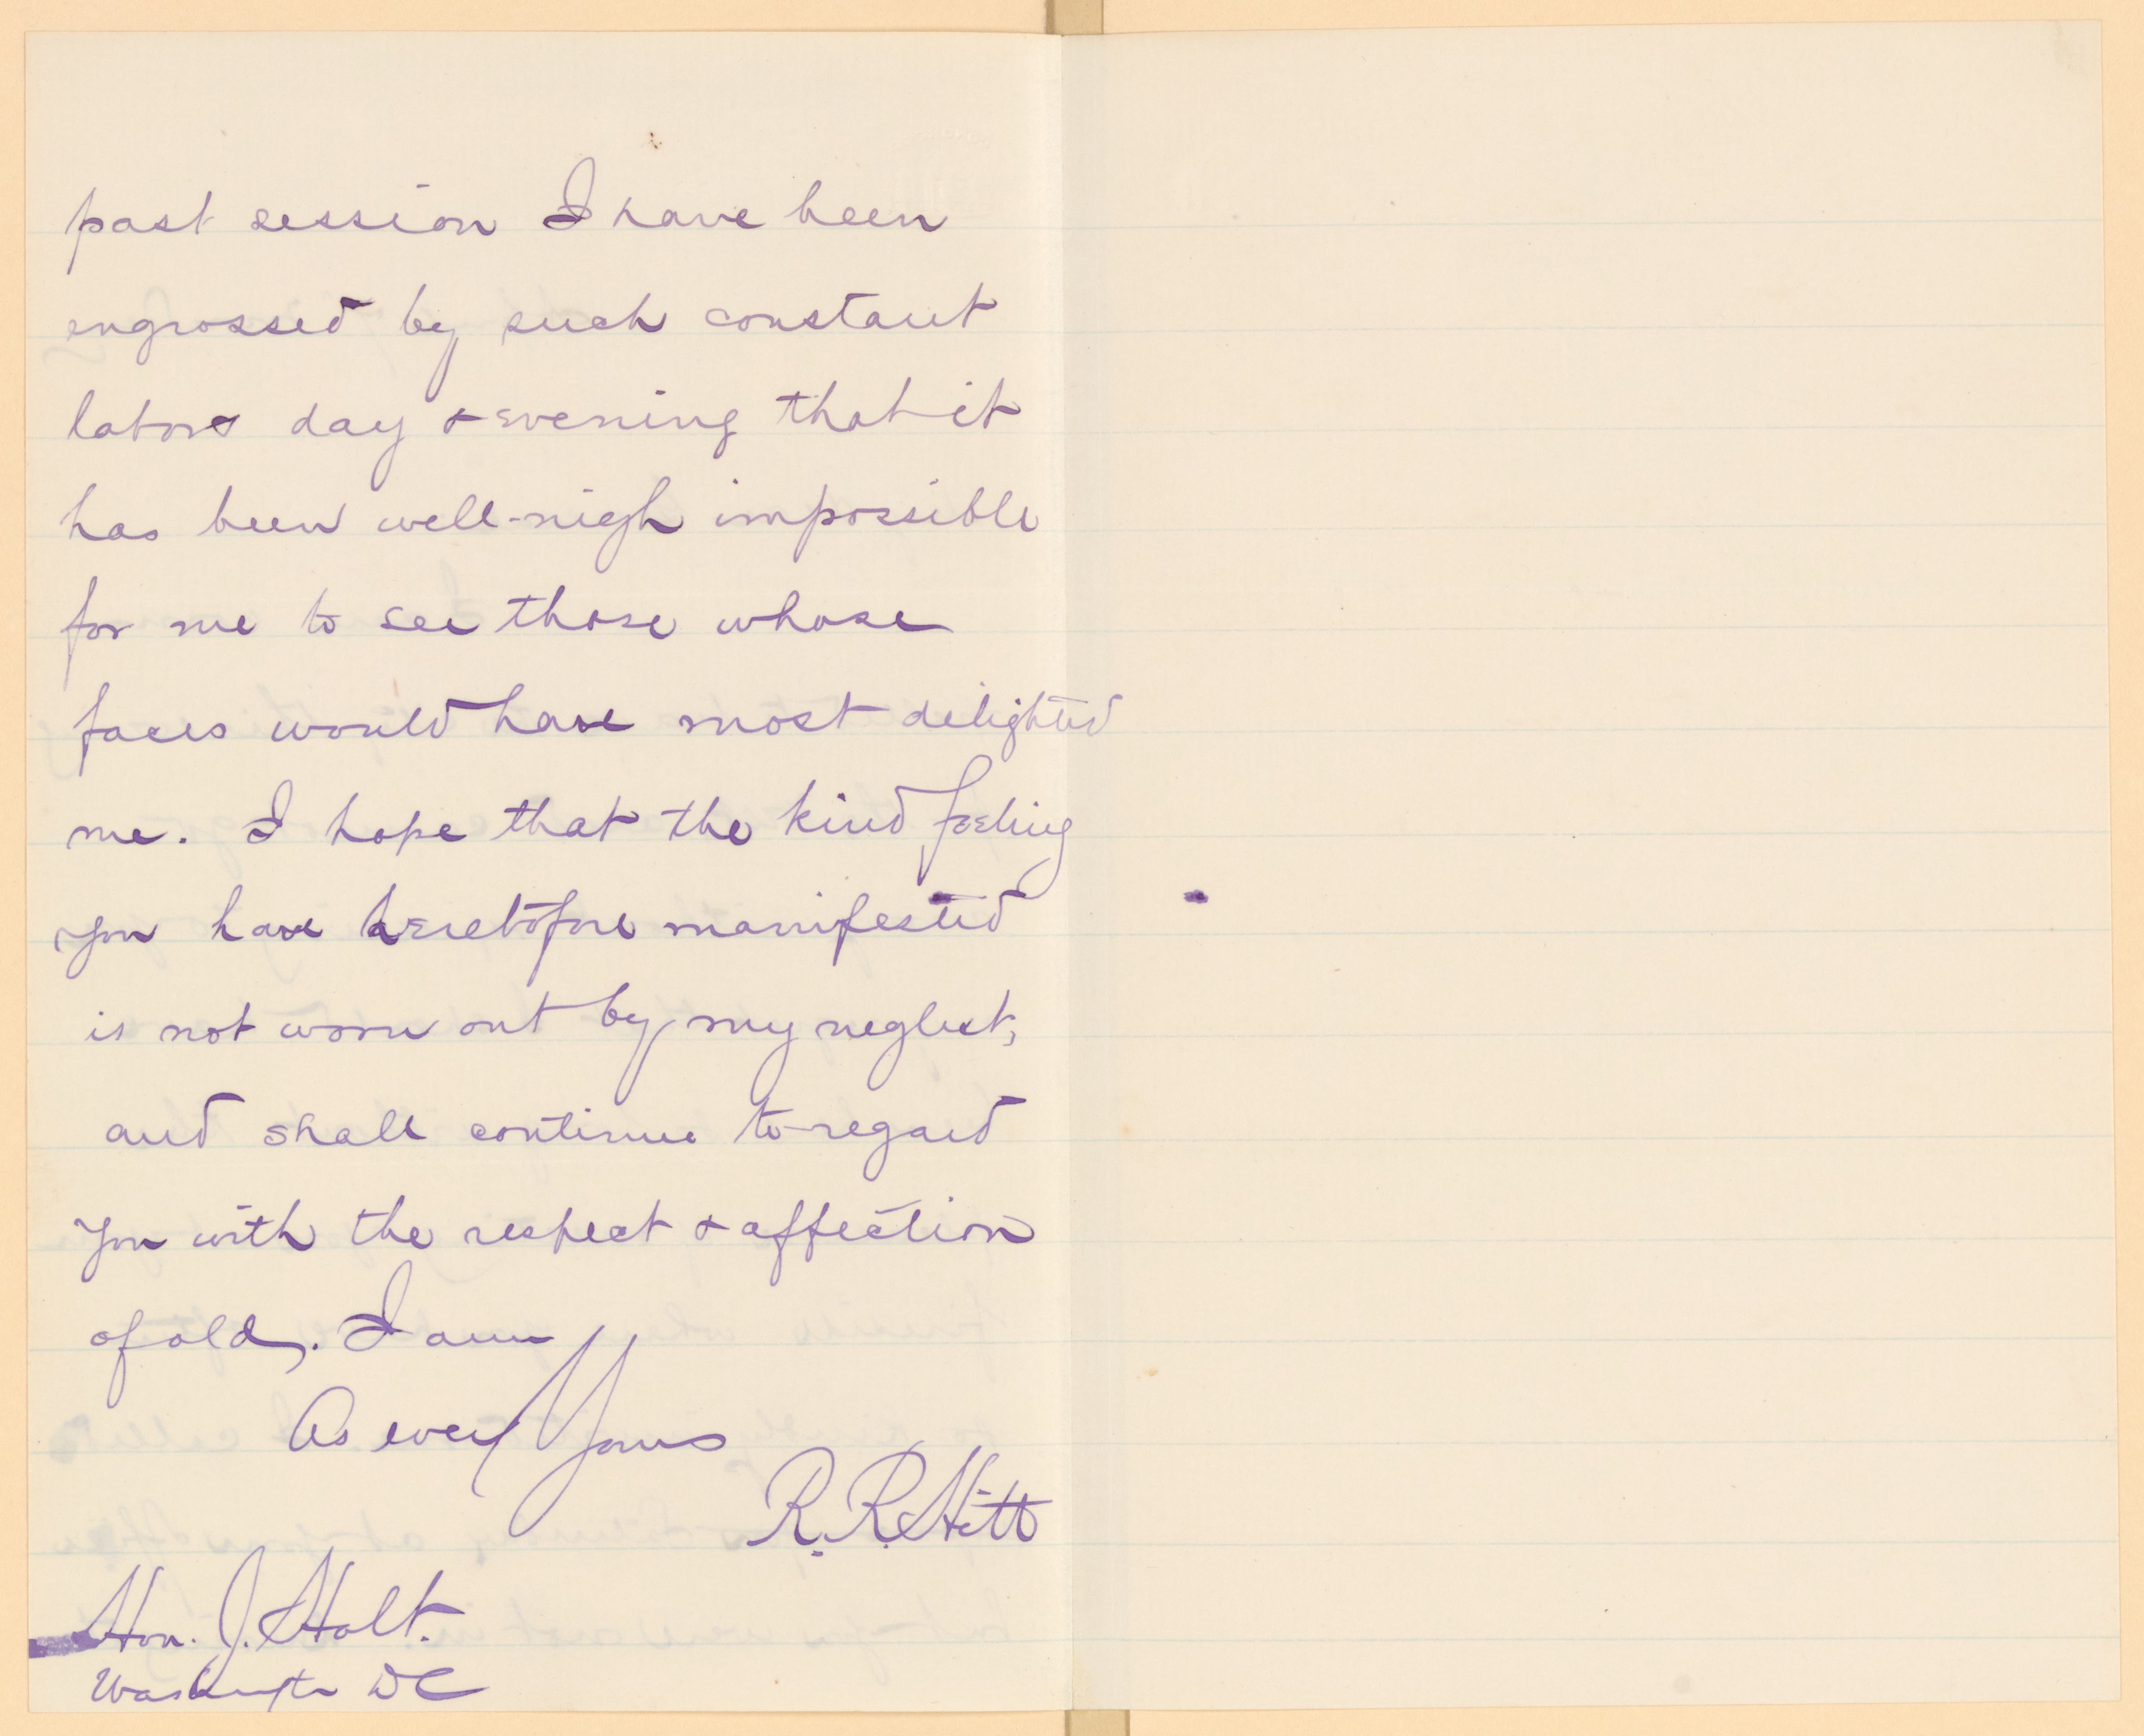 past session I have been
engrossed by such constant
labors day & evening that it
has been well-nigh impossible
for me to see those whose
faces would have most delighted
me. I hope that the kind feeling
you have heretofore manifested
is not worn out by my neglect,
and shall continue to regard
you with the respect & affection
of old. I am
As ever Yours
R. R. Hitt
Hon. J. Holt.
Washington DC